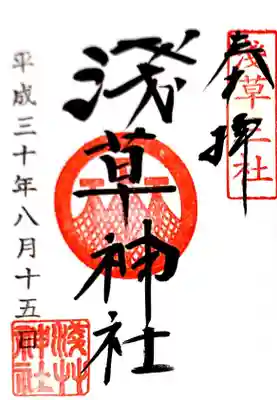 奉拝
浅草三社
浅草神社
平成三十年八月十五日
浅草神社